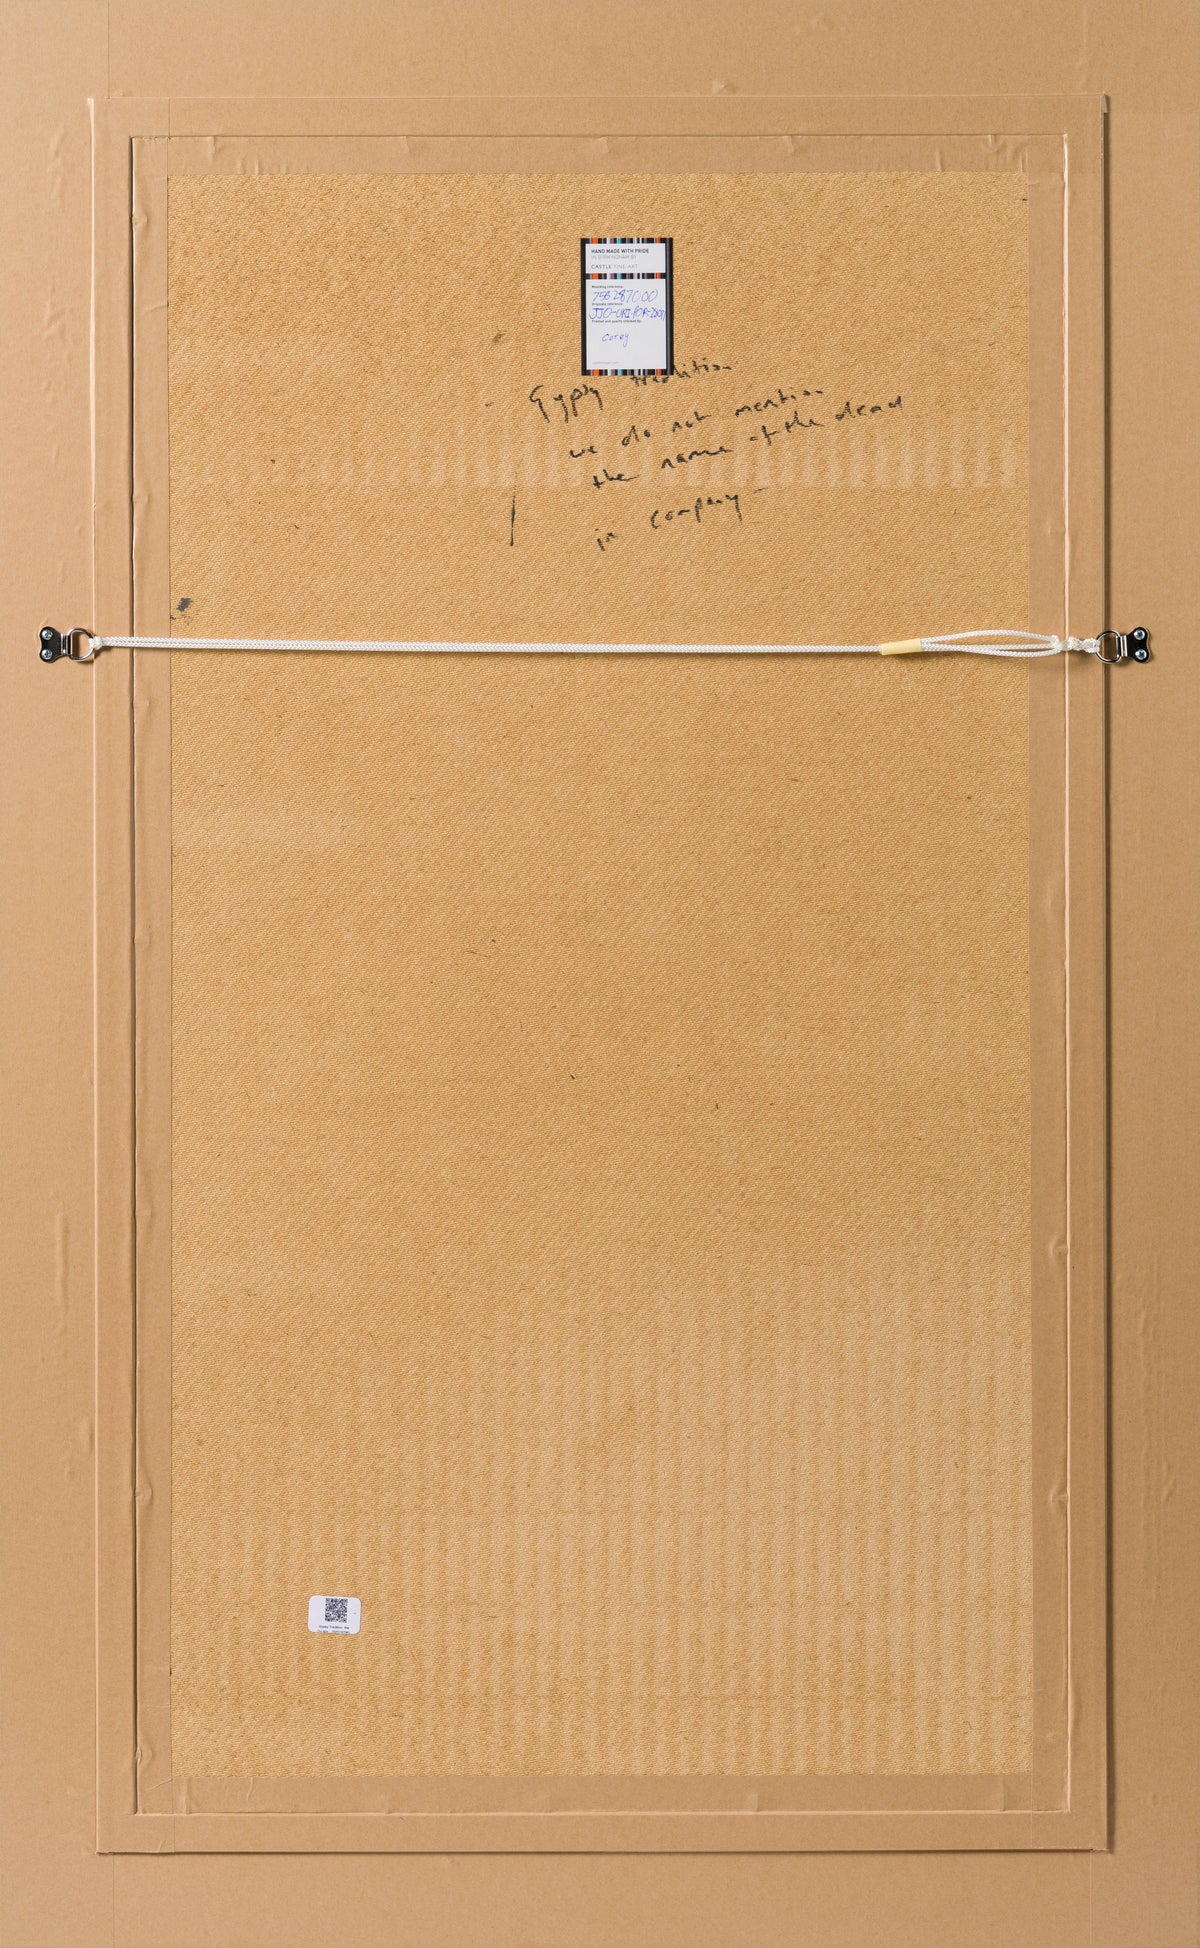 HAND MADE WITH PRIDE
IN BIRMINGHAM BY
CASTLE FINE ART
Moulding reference:
Originals reference:
Framed and quality checked by:
Corey
Gypsy tradition
we do not mention
the name of the dead
in company -